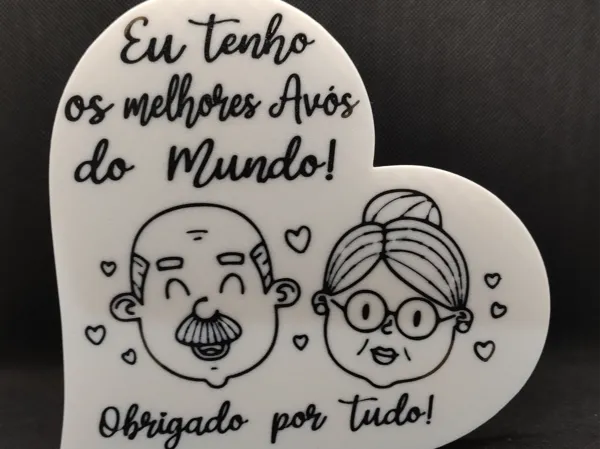 Eu tenho
os melhores Avós
do Mundo!
Obrigado por tudo!